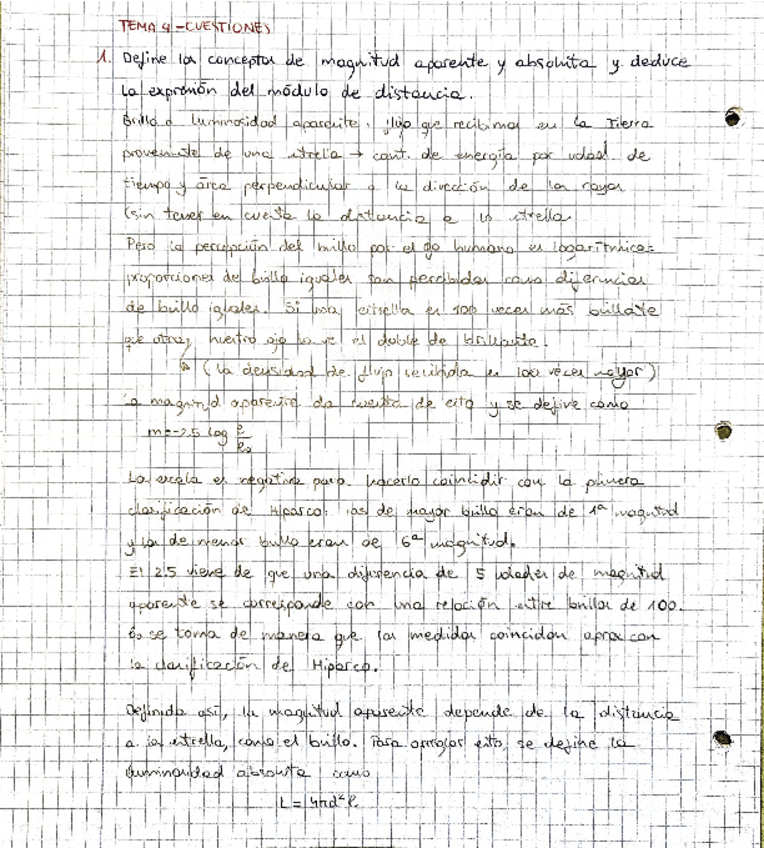 TEMA 4 - CUESTIONES
1. Define los conceptos de magnitud aparente y absoluta y deduce
la expresión del módulo de distancia.
Brillo o luminosidad aparente: flujo que recibimos en la Tierra
proveniente de una estrella → cant. de energía por udad. de
tiempo y área perpendicular a la dirección de los rayos
(sin tener en cuenta la distancia a la estrella
Pero la percepción del brillo por el ojo humano es logarítmica:
proporciones de brillo iguales son percibidas como diferencias
de brillo iguales. Si una estrella es 100 veces más brillante
que otra, nuestro ojo la ve el doble de brillante.
(la densidad de flujo recibida es 100 veces mayor)
a magnitud aparente da cuenta de esto y se define como
m = -2.5 log ℓ/ℓ₀
La escala es negativa para hacerlo coincidir con la primera
clasificación de Hiparco: las de mayor brillo eran de 1ª magnitud
y las de menor brillo eran de 6ª magnitud.
El 2.5 viene de que una diferencia de 5 udades de magnitud
aparente se corresponde con una relación entre brillos de 100.
ℓ₀ se toma de manera que las medidas coincidan aprox con
la clasificación de Hiparco.
Definida así, la magnitud aparente depende de la distancia
a la estrella, como el brillo. Para arreglar esto, se define la
luminosidad absoluta como
L = 4πd²ℓ